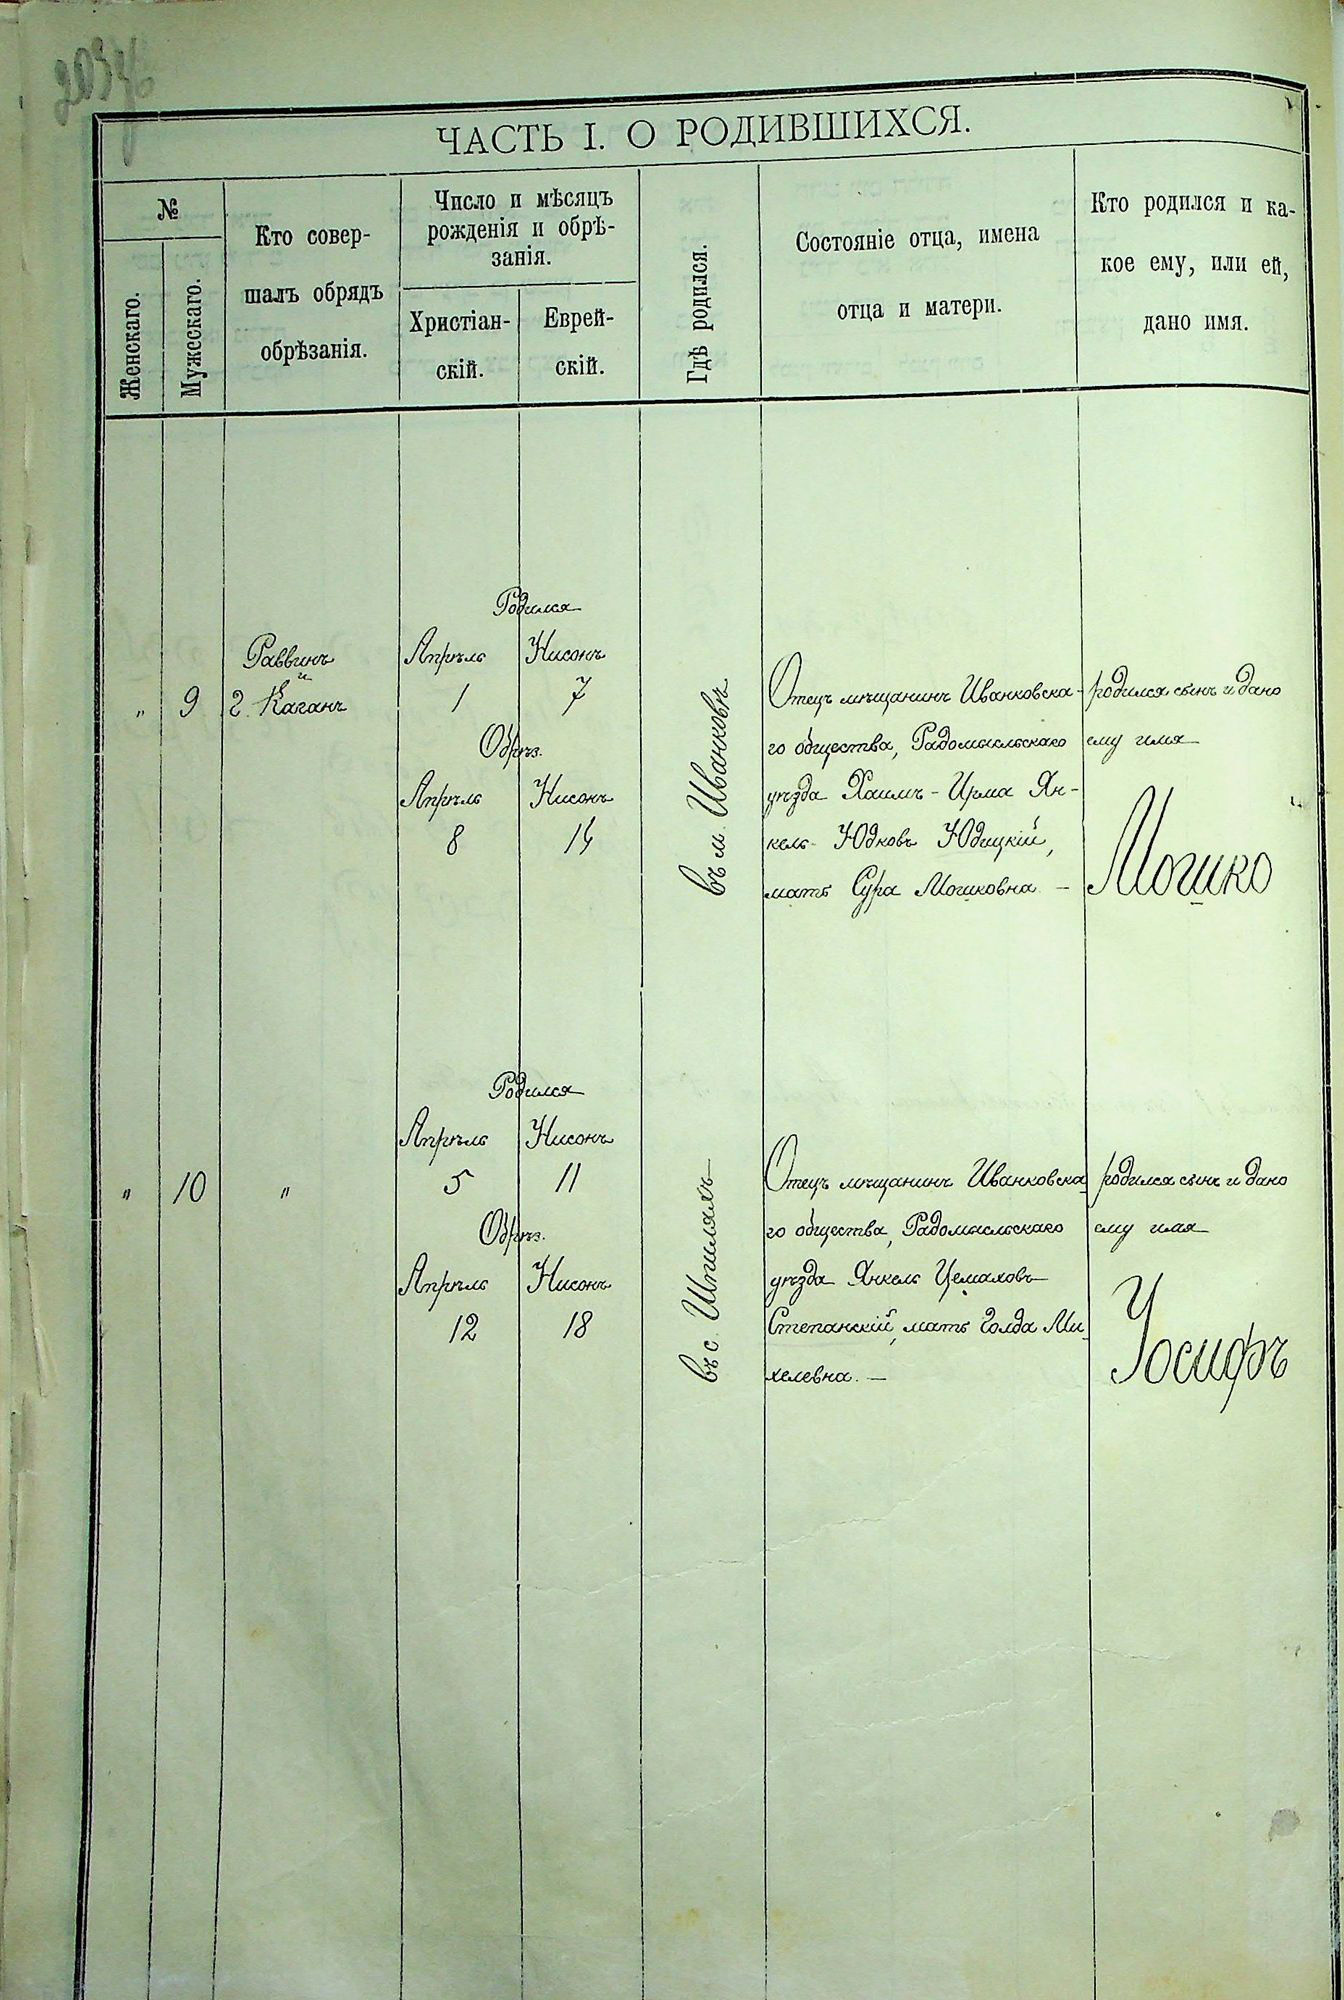 ЧАСТЬ I. О РОДИВШИХСЯ.
№
Женскаго.
Мужескаго.
Кто совер-
шалъ обрядъ
обрѣзанія.
Число и мѣсяцъ
рожденія и обрѣ-
занія.
Христіан-
скій.
Еврей-
скій.
Гдѣ родился.
Состояніе отца, имена
отца и матери.
Кто родился и ка-
кое ему, или ей,
дано имя.
Родился
Раввинъ Апрѣль Нисонъ
и
" 9 2. Каганъ 1 7
Обрѣз.
Апрѣль Нисонъ
8 14
въ м. Иванковѣ
Отецъ мѣщанинъ Иванковска-
го общества, Радомысльскаго
уѣзда Хаимъ-Ирма Ян-
кель Юдковъ Юдицкій,
мать Сура Мошковна —
родился сынъ и дано
ему имя
Мошко
Родился
Апрѣль Нисонъ
" 10 " 5 11
Обрѣз.
Апрѣль Нисонъ
12 18
въ с. Шпиляхъ
Отецъ мѣщанинъ Иванковска
го общества, Радомысльскаго
уѣзда Янкель Цемаховъ
Степанскій, мать Голда Ми-
хелевна. —
родился сынъ и дано
ему имя
Іосифъ